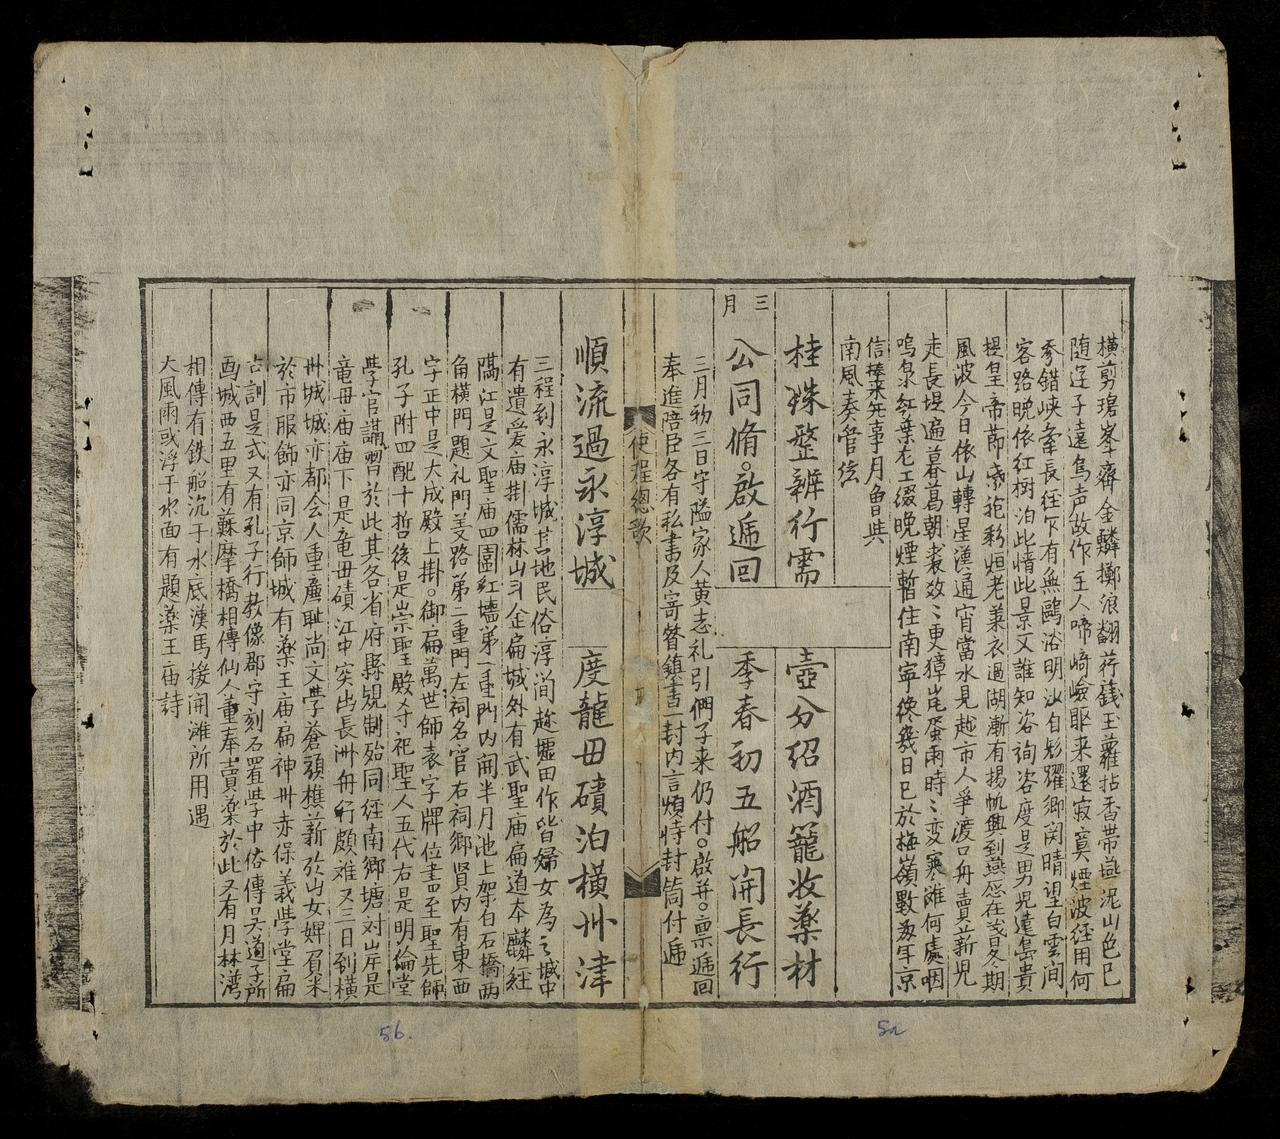 橫剪碧峯齊金鱗擲浪翻荇錢玉蘿拈香帶燕泥山色已
随逆子遠鳥声故作主人啼崎嶮耶来還寂寞煙波經用何
叅錯峽牽長徃下有無鷗浴明沙自影躍卿関晴望白雲間
客路晩依紅樹泊此情此景又誰知咨詢咨度是男児逹島貴
提皇帝莭紫花彩烜老萊衣過湖漸有揚帆興到燕應在浅冬期
風波今日依山轉星漢通宵當水見越市人爭渡口舟賣薪児
走長堤遍暮葛朝裘效〻更獐嵐蛋雨時〻变寒灘何處咽
鳴泉紅葉老工綴晩煙暫住南寧俟幾日已於梅嶺數為年京
信棒来先事月鱼共
南風奏管絃
桂珠整辨行需
壺分绍酒籠收薬材
三月
公同脩啟遞回
季春初五船開長行
三月初三日守隘家人黄志礼引們子来仍付啟并禀遞回
奉進陪臣各有私書及寄督鎮書一封内言煩恃封筒付遞
使程總歌
順流過永淳城
度龍母磧泊横州津
三程到永淳城其地民俗淳涧趂墟田作皆婦女為之城中
有遺爱庙掛儒林山斗企扁城外有武聖庙扁道本麟經
隔江是文聖庙四圍紅墙第一重門内開半月池上架白石橋两
角横門題礼門義路第二重門左祠名官右祠鄉賢内有東西
字正中是大成殿上掛御扁萬世師表字牌位書至聖先師
孔子附四配十哲後是崇聖殿寺祀聖人五代右是明倫堂
學官講習於此其各省府縣規制殆同経南鄉塘对岸是
竜母庙庙下是竜母磧江中突出長洲舟行頗难又三日到横
州城城亦都会人重廉耻尚文學蒼頭樵薪於山女婢負米
於市服飾亦同京師城有薬王庙扁神州赤保義學堂扁
古訓是式又有孔子行教像郡守刻石置学中俗傳吴道子所
画城西五里有蘇摩橋相傳仙人董奉賣薬於此又有月林湾
相傳有鉄船沉于水底漢馬援開灘所用遇
大風雨或浮于水面有題薬王庙詩
5b.
5a